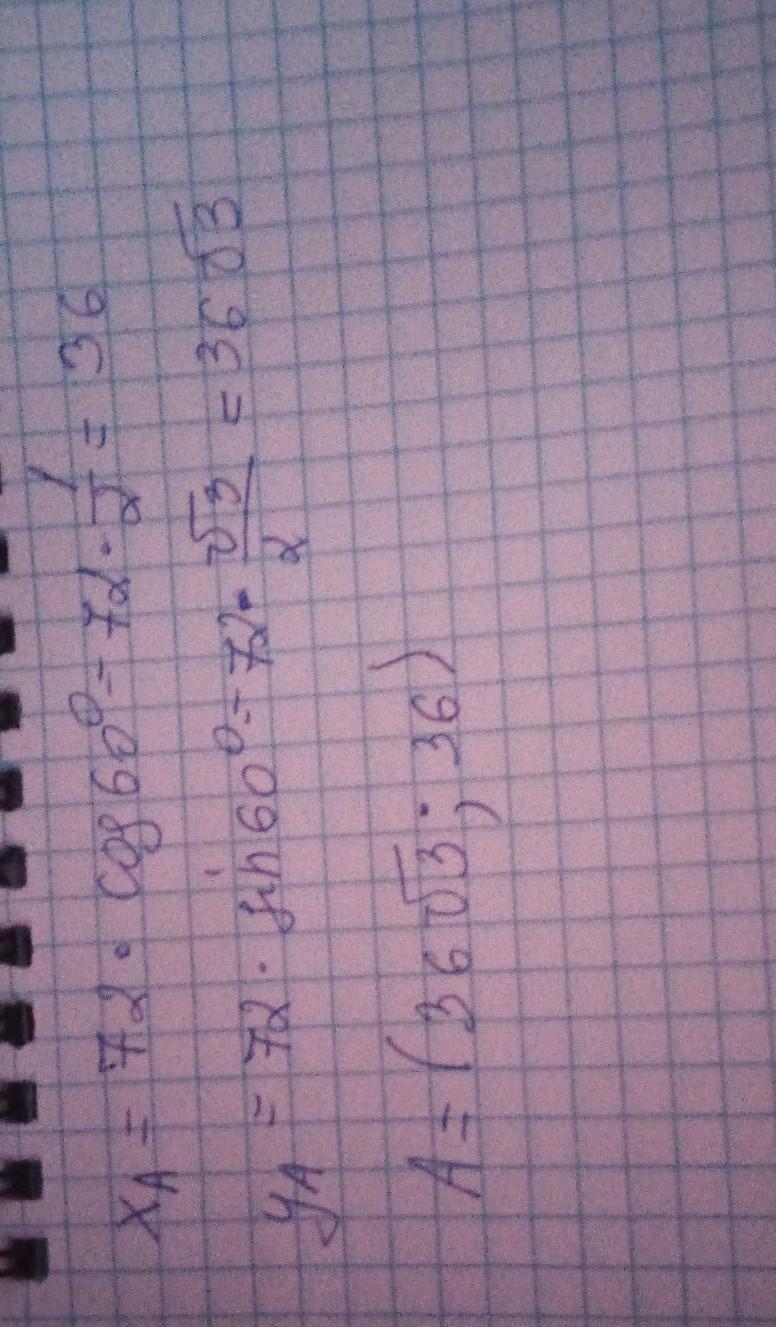 x_A = 72 · cos 60° = 72 · 1/2 = 36
y_A = 72 · sin 60° = 72 · √3/2 = 36√3
A = (36√3 ; 36)